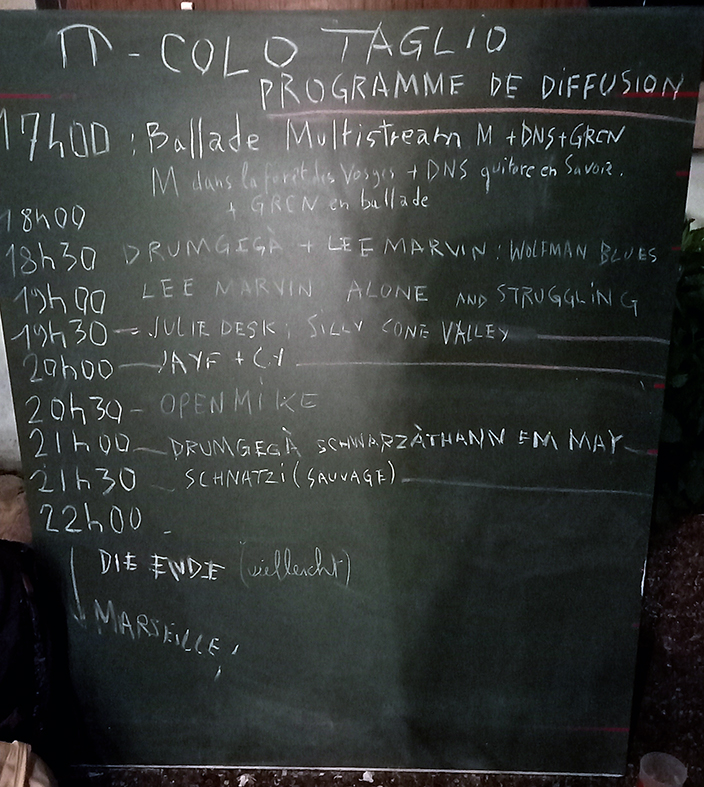 π - COLO TAGLIO
PROGRAMME DE DIFFUSION
17h00 : Ballade Multistream M + DNS + GRCN
M dans la forêt des Vosges + DNS guitare en Savoie.
+ GRCN en ballade
18h00
18h30 DRUMGEGÀ + LEE MARVIN : WOLFMAN BLUES
19h00 LEE MARVIN ALONE AND STRUGGLING
19h30 — JULIE DESK : SILLY CONE VALLEY
20h00 — JAYF + CY
20h30 - OPEN MIKE
21h00 — DRUMGEGÀ SCHWARZÀTHANN EM MAY
21h30 SCHNATZI (SAUVAGE)
22h00 -
DIE ENDE (vielleicht)
MARSEILLE,